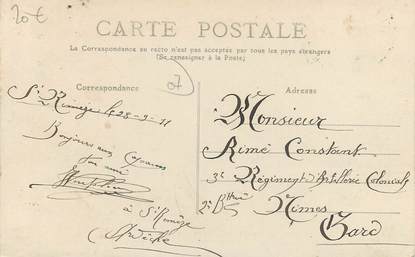 20€
CARTE POSTALE
La Correspondance au recto n'est pas acceptée par tous les pays étrangers
(Se renseigner à la Poste)
Correspondance
07
Adresse
St Remèze le 28-9-11
Bonjours aux
ton ami
à St Remèze
Ardèche
Monsieur
Rimé Constant
3e Régiment d'Artillerie Coloniale
2e Btrie
Nimes
Gard